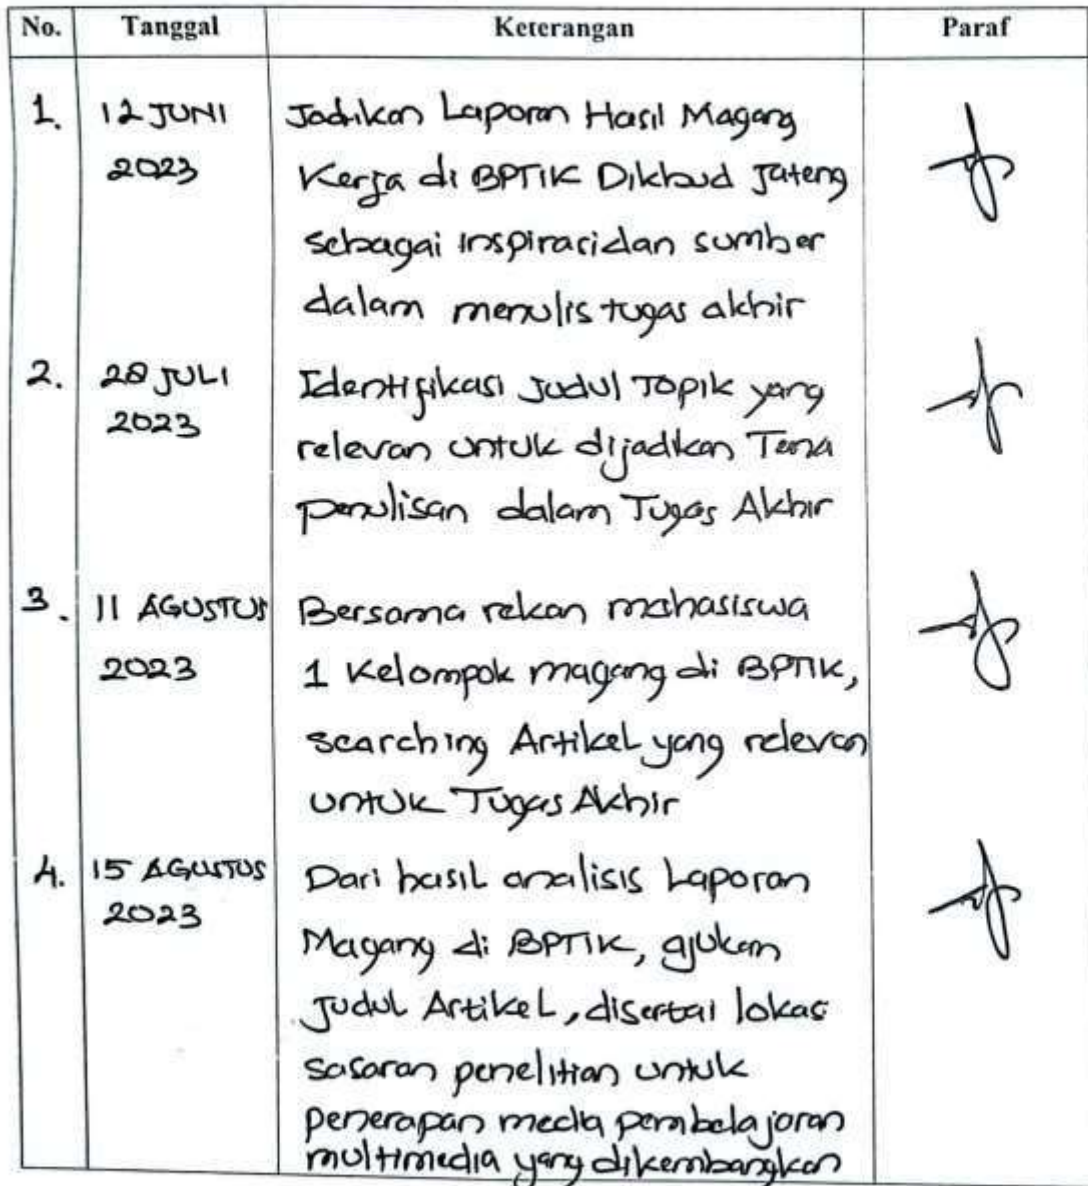 No. Tanggal Keterangan Paraf
1. 12 JUNI Jadikan Laporan Hasil Magang
2023 Kerja di BPTIK Dikbud Jateng
sebagai inspirasi dan sumber
dalam menulis tugas akhir
2. 28 JULI Identifikasi Judul Topik yang
2023 relevan untuk dijadikan Tema
penulisan dalam Tugas Akhir
3. 11 AGUSTUS Bersama rekan mahasiswa
2023 1 Kelompok magang di BPTIK,
searching Artikel yang relevan
untuk Tugas Akhir
4. 15 AGUSTUS Dari hasil analisis Laporan
2023 Magang di BPTIK, ajukan
Judul Artikel, disertai lokas
sasaran penelitian untuk
penerapan media pembelajaran
multimedia yang dikembangkan